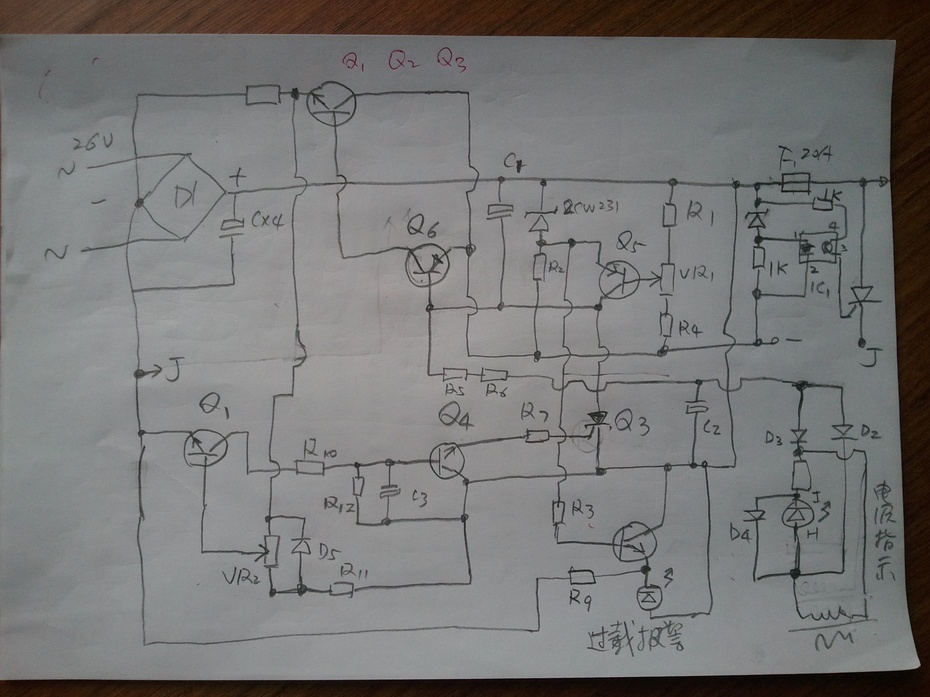 Q1 Q2 Q3
26V
~
D1
+
-
~
CX4
Q6
2CW231
R2
Q5
R1
VR1
R4
F1 20A
1K
4
3
2
1K
IC1
-
J
J
R5 R6
Q1
Q4
R7
Q3
C2
D3
D2
R10
R12
C3
R3
VR2
D5
R11
R9
D4
H
过载报警
电源指示